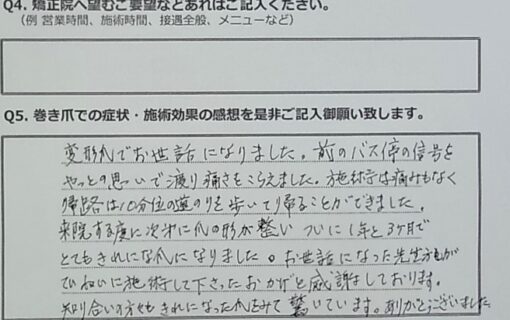 Q4. 矯正院へ望むご要望などあればご記入ください。
（例 営業時間、施術時間、接遇全般、メニューなど）
Q5. 巻き爪での症状・施術効果の感想を是非ご記入御願い致します。
変形爪でお世話になりました。前のバス停の信号を
やっとの思いで渡り痛さをこらえました。施術後は痛みもなく
帰路は10分位の道のりを歩いて帰ることができました。
来院する度に次第に爪の形が整い ついに1年と3ヶ月で
とてもきれいな爪になりました。お世話になった先生方が
ていねいに施術して下さったおかげと感謝しております。
知り合いの方もきれいになった爪をみて驚いています。ありがとうございました